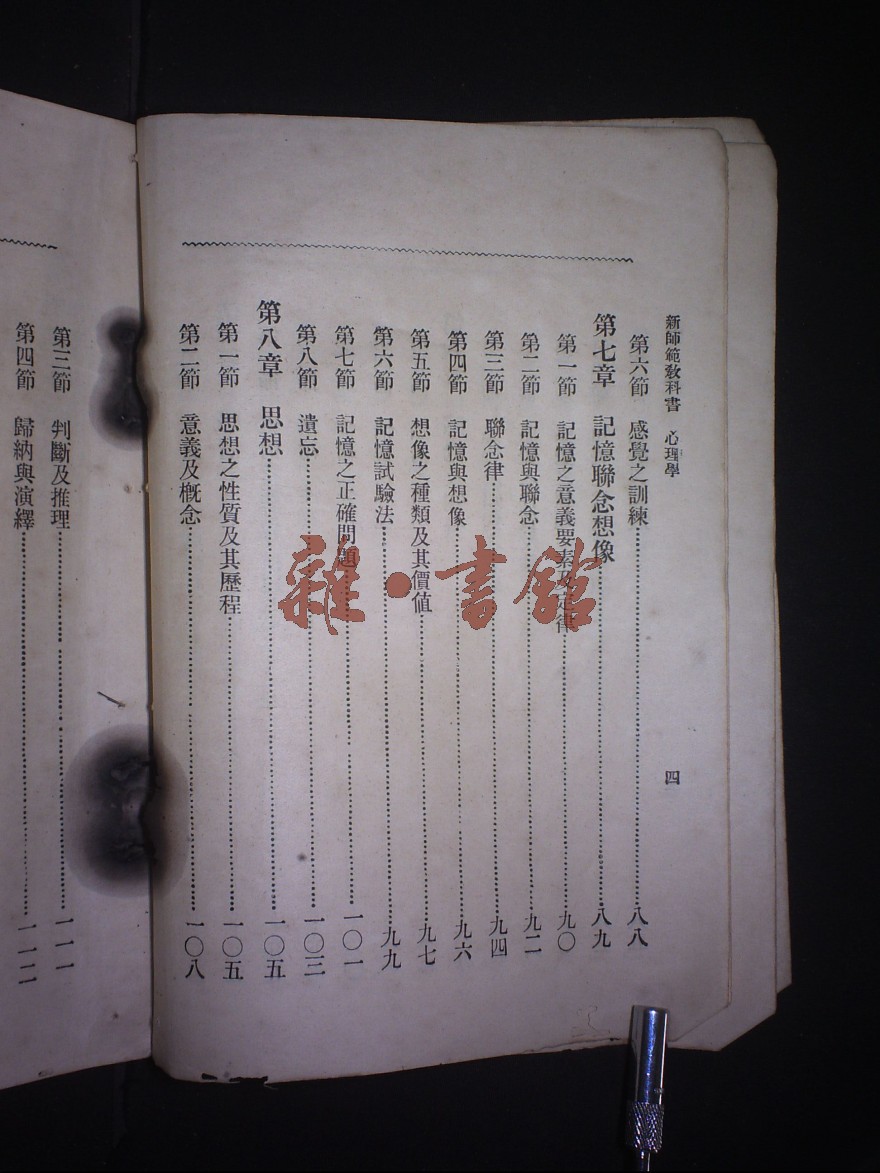 新師範教科書　心理學　四
第六節　感覺之訓練……八八
第七章　記憶聯念想像……八九
第一節　記憶之意義要素及定律……九〇
第二節　記憶與聯念……九二
第三節　聯念律……九四
第四節　記憶與想像……九六
第五節　想像之種類及其價值……九七
第六節　記憶試驗法……九九
第七節　記憶之正確問題……一〇一
第八節　遺忘……一〇三
第八章　思想……一〇五
第一節　思想之性質及其歷程……一〇五
第二節　意義及概念……一〇八
第三節　判斷及推理……一一一
第四節　歸納與演繹……一一二
雜·書館